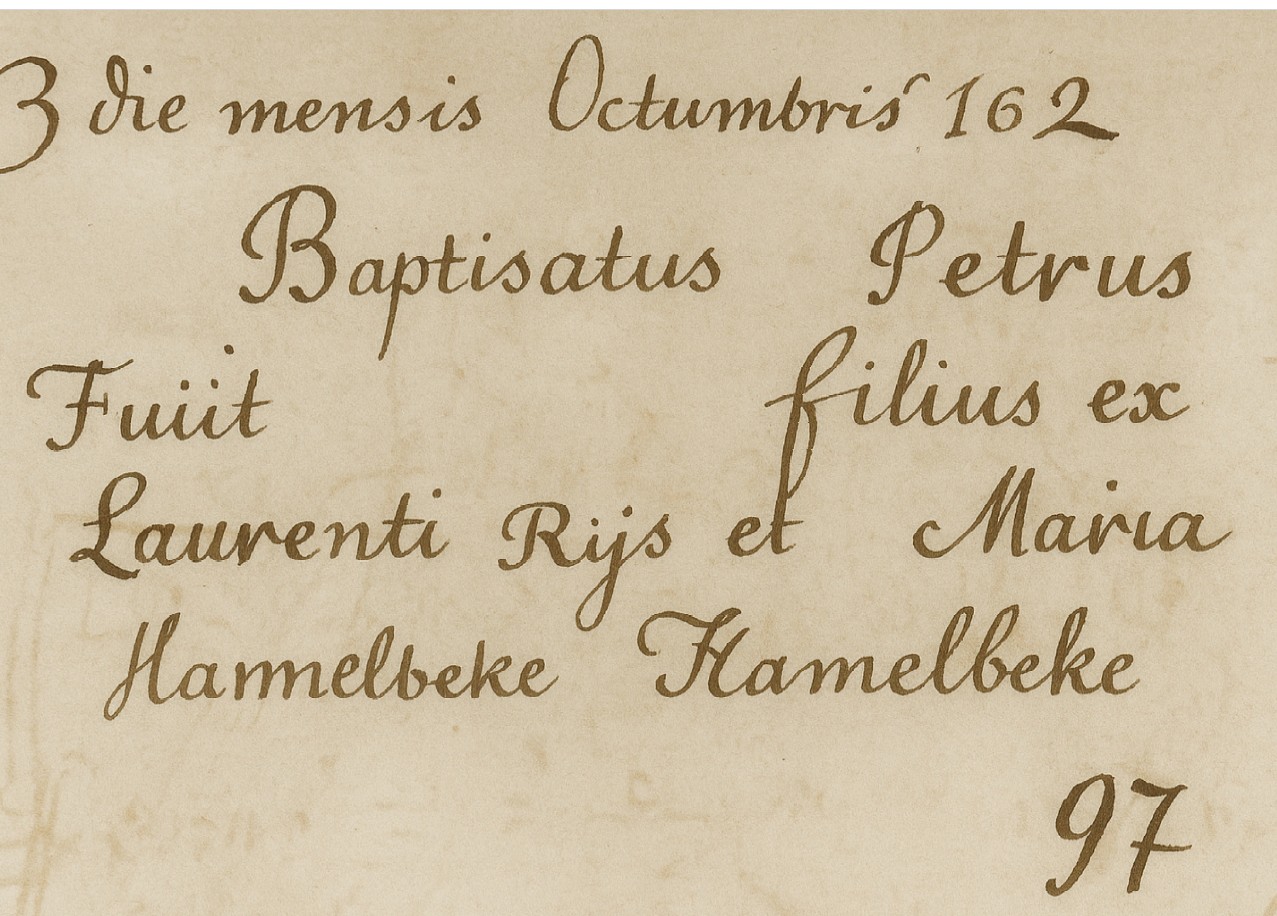 3 die mensis Octumbris 162
Baptisatus Petrus
Fuiit filius ex
Laurenti Rijs et Maria
Hannelbeke Hamelbeke
97